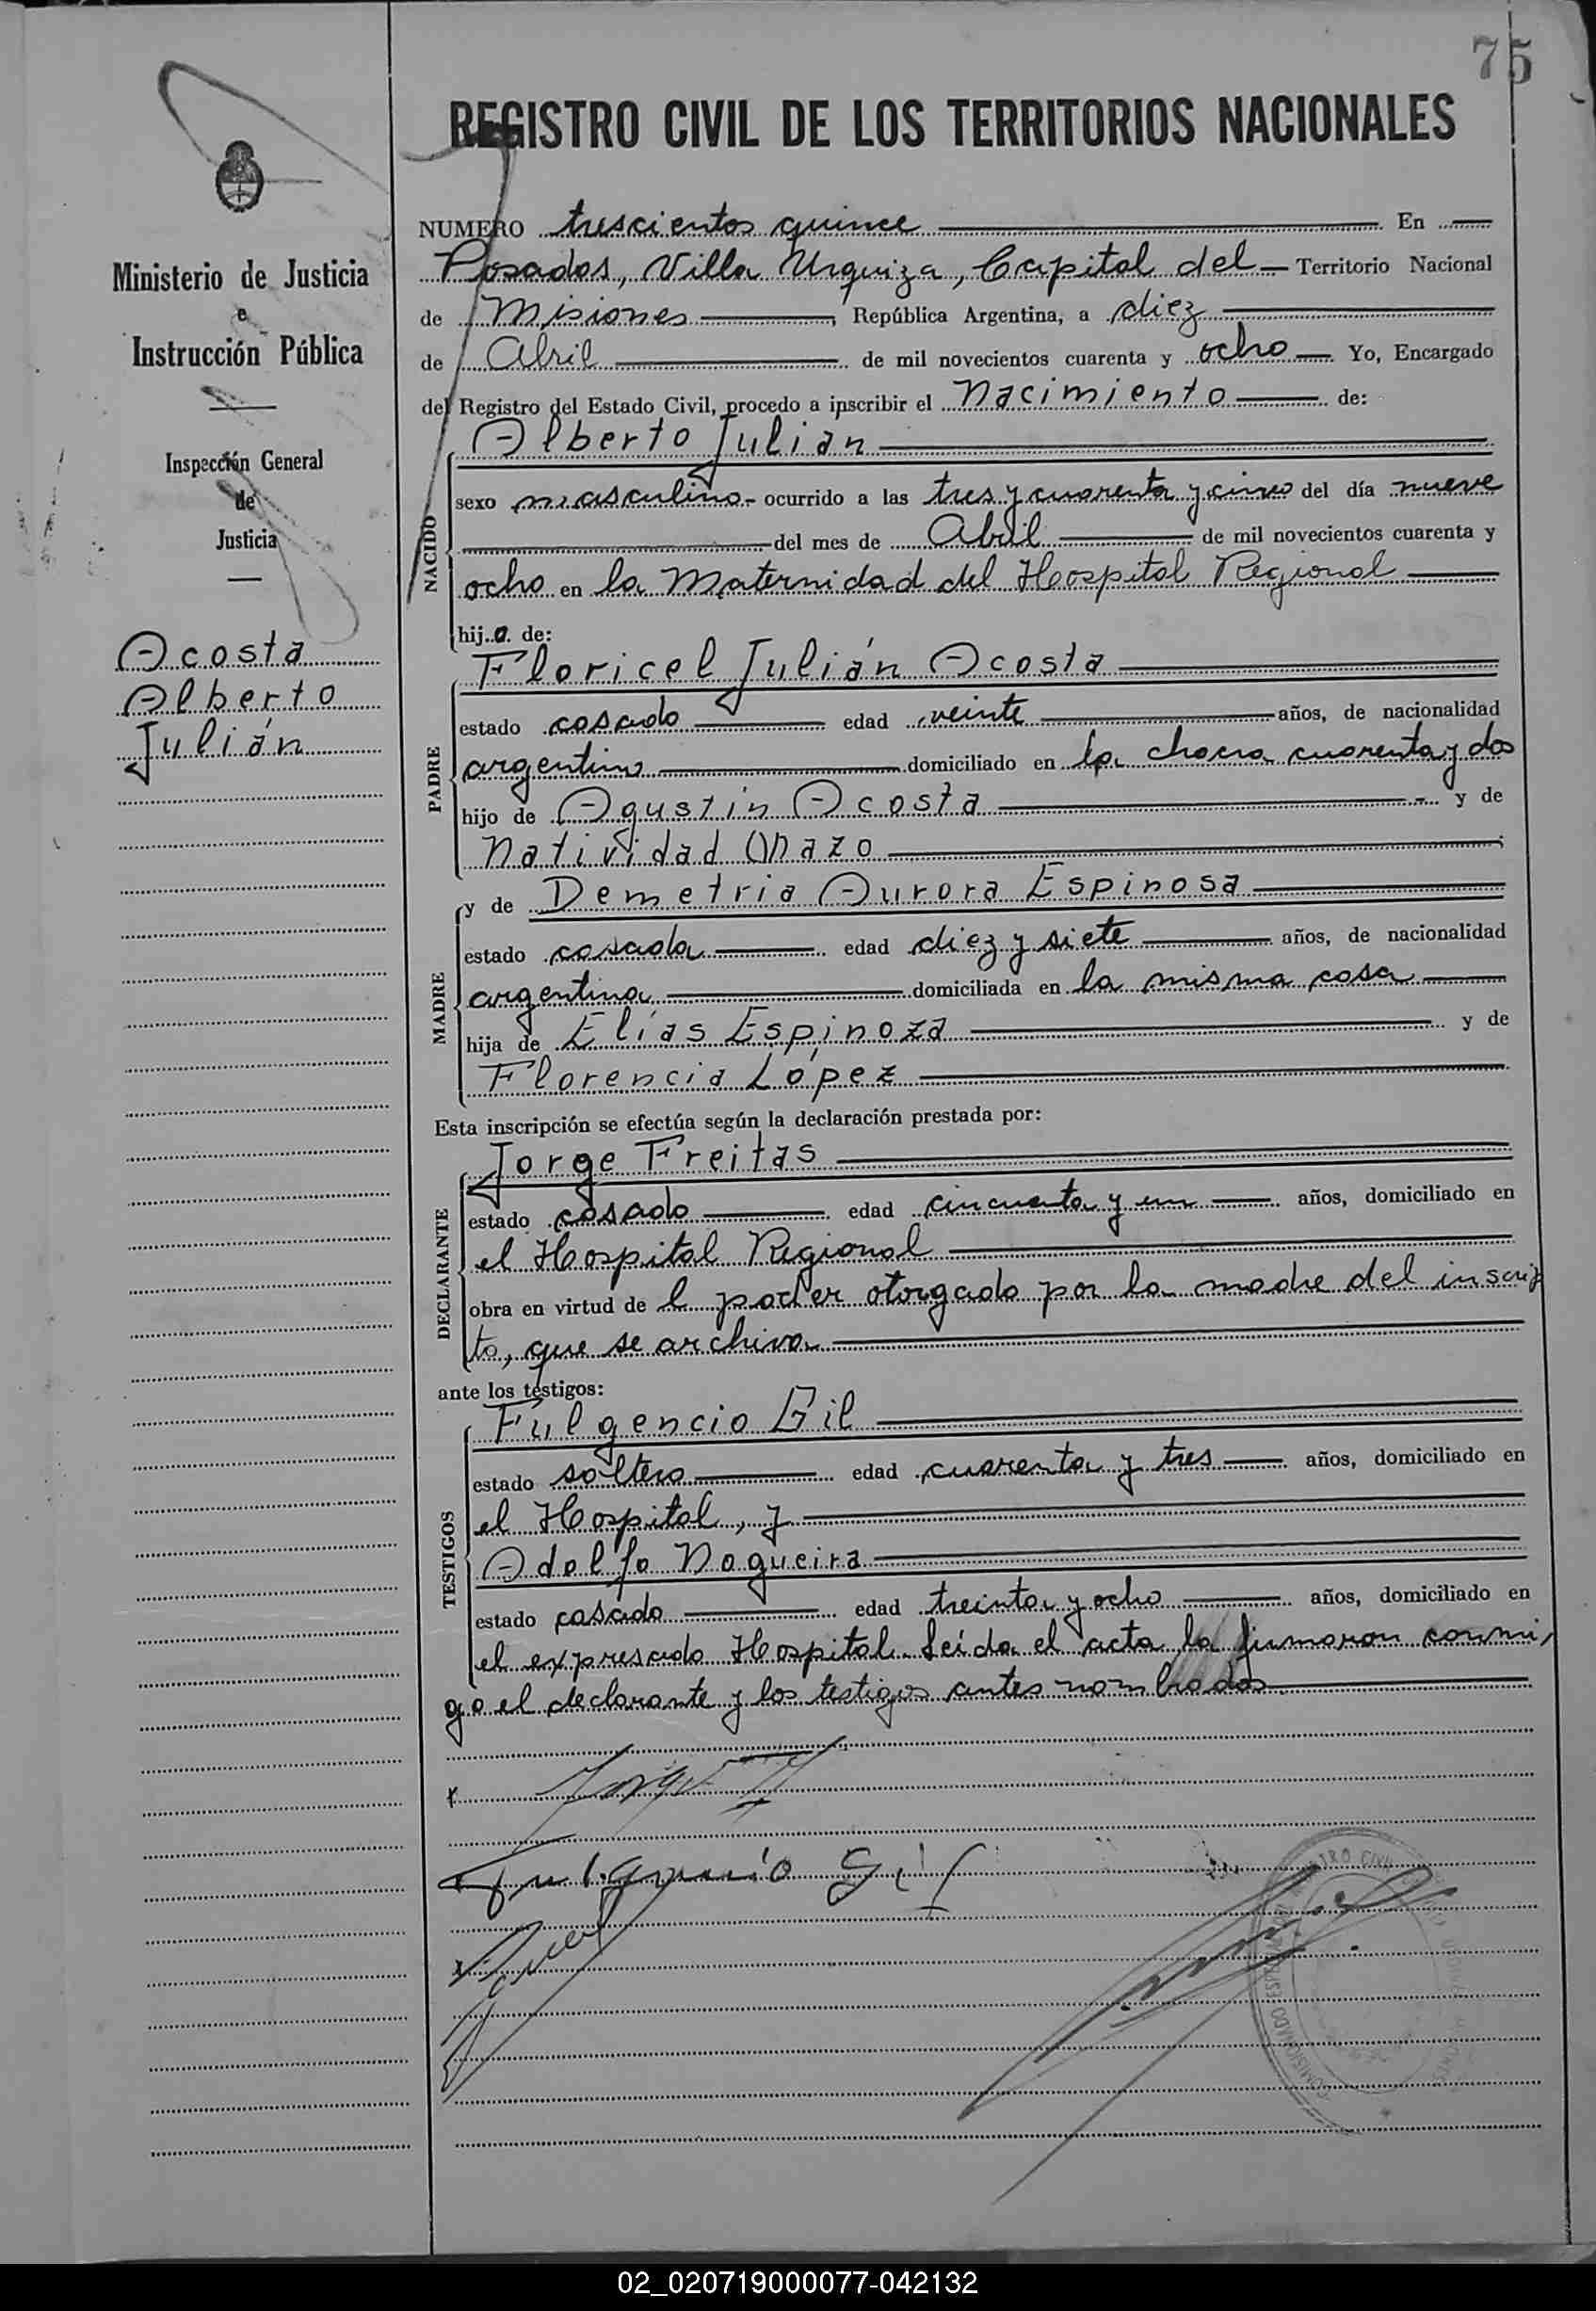 75
REGISTRO CIVIL DE LOS TERRITORIOS NACIONALES
Ministerio de Justicia
e
Instrucción Pública
Inspección General
de
Justicia
Acosta
Alberto
Julián
NUMERO trescientos quince En
Posadas, Villa Urquiza, Capital del Territorio Nacional
de Misiones, República Argentina, a diez
de Abril de mil novecientos cuarenta y ocho Yo, Encargado
del Registro del Estado Civil, procedo a inscribir el Nacimiento de:
NACIDO
Alberto Julián
sexo masculino - ocurrido a las tres y cuarenta y cinco del día nueve
del mes de Abril de mil novecientos cuarenta y
ocho en la Maternidad del Hospital Regional
hijo de:
PADRE
Floricel Julián Acosta
estado casado edad veinte años, de nacionalidad
argentino domiciliado en la chacra cuarenta y dos
hijo de Agustín Acosta y de
Natividad
MADRE
y de Demetria Aurora Espinosa
estado casada edad diez y siete años, de nacionalidad
argentina domiciliada en la misma casa
hija de Elías Espinoza y de
Florencia López
Esta inscripción se efectúa según la declaración prestada por:
DECLARANTE
Jorge Freitas
estado casado edad cincuenta y un años, domiciliado en
el Hospital Regional
obra en virtud de l poder otorgado por la madre del inscrip
to, que se archiva
ante los testigos:
TESTIGOS
Fulgencio Gil
estado soltero edad cuarenta y tres años, domiciliado en
el Hospital, y
Adolfo Nogueira
estado casado edad treinta y ocho años, domiciliado en
el expresado Hospital. Leída el acta la firmaron conmi,
go el declarante y los testigos antes nombrados.
Fulgencio Gil
02_020719000077-042132